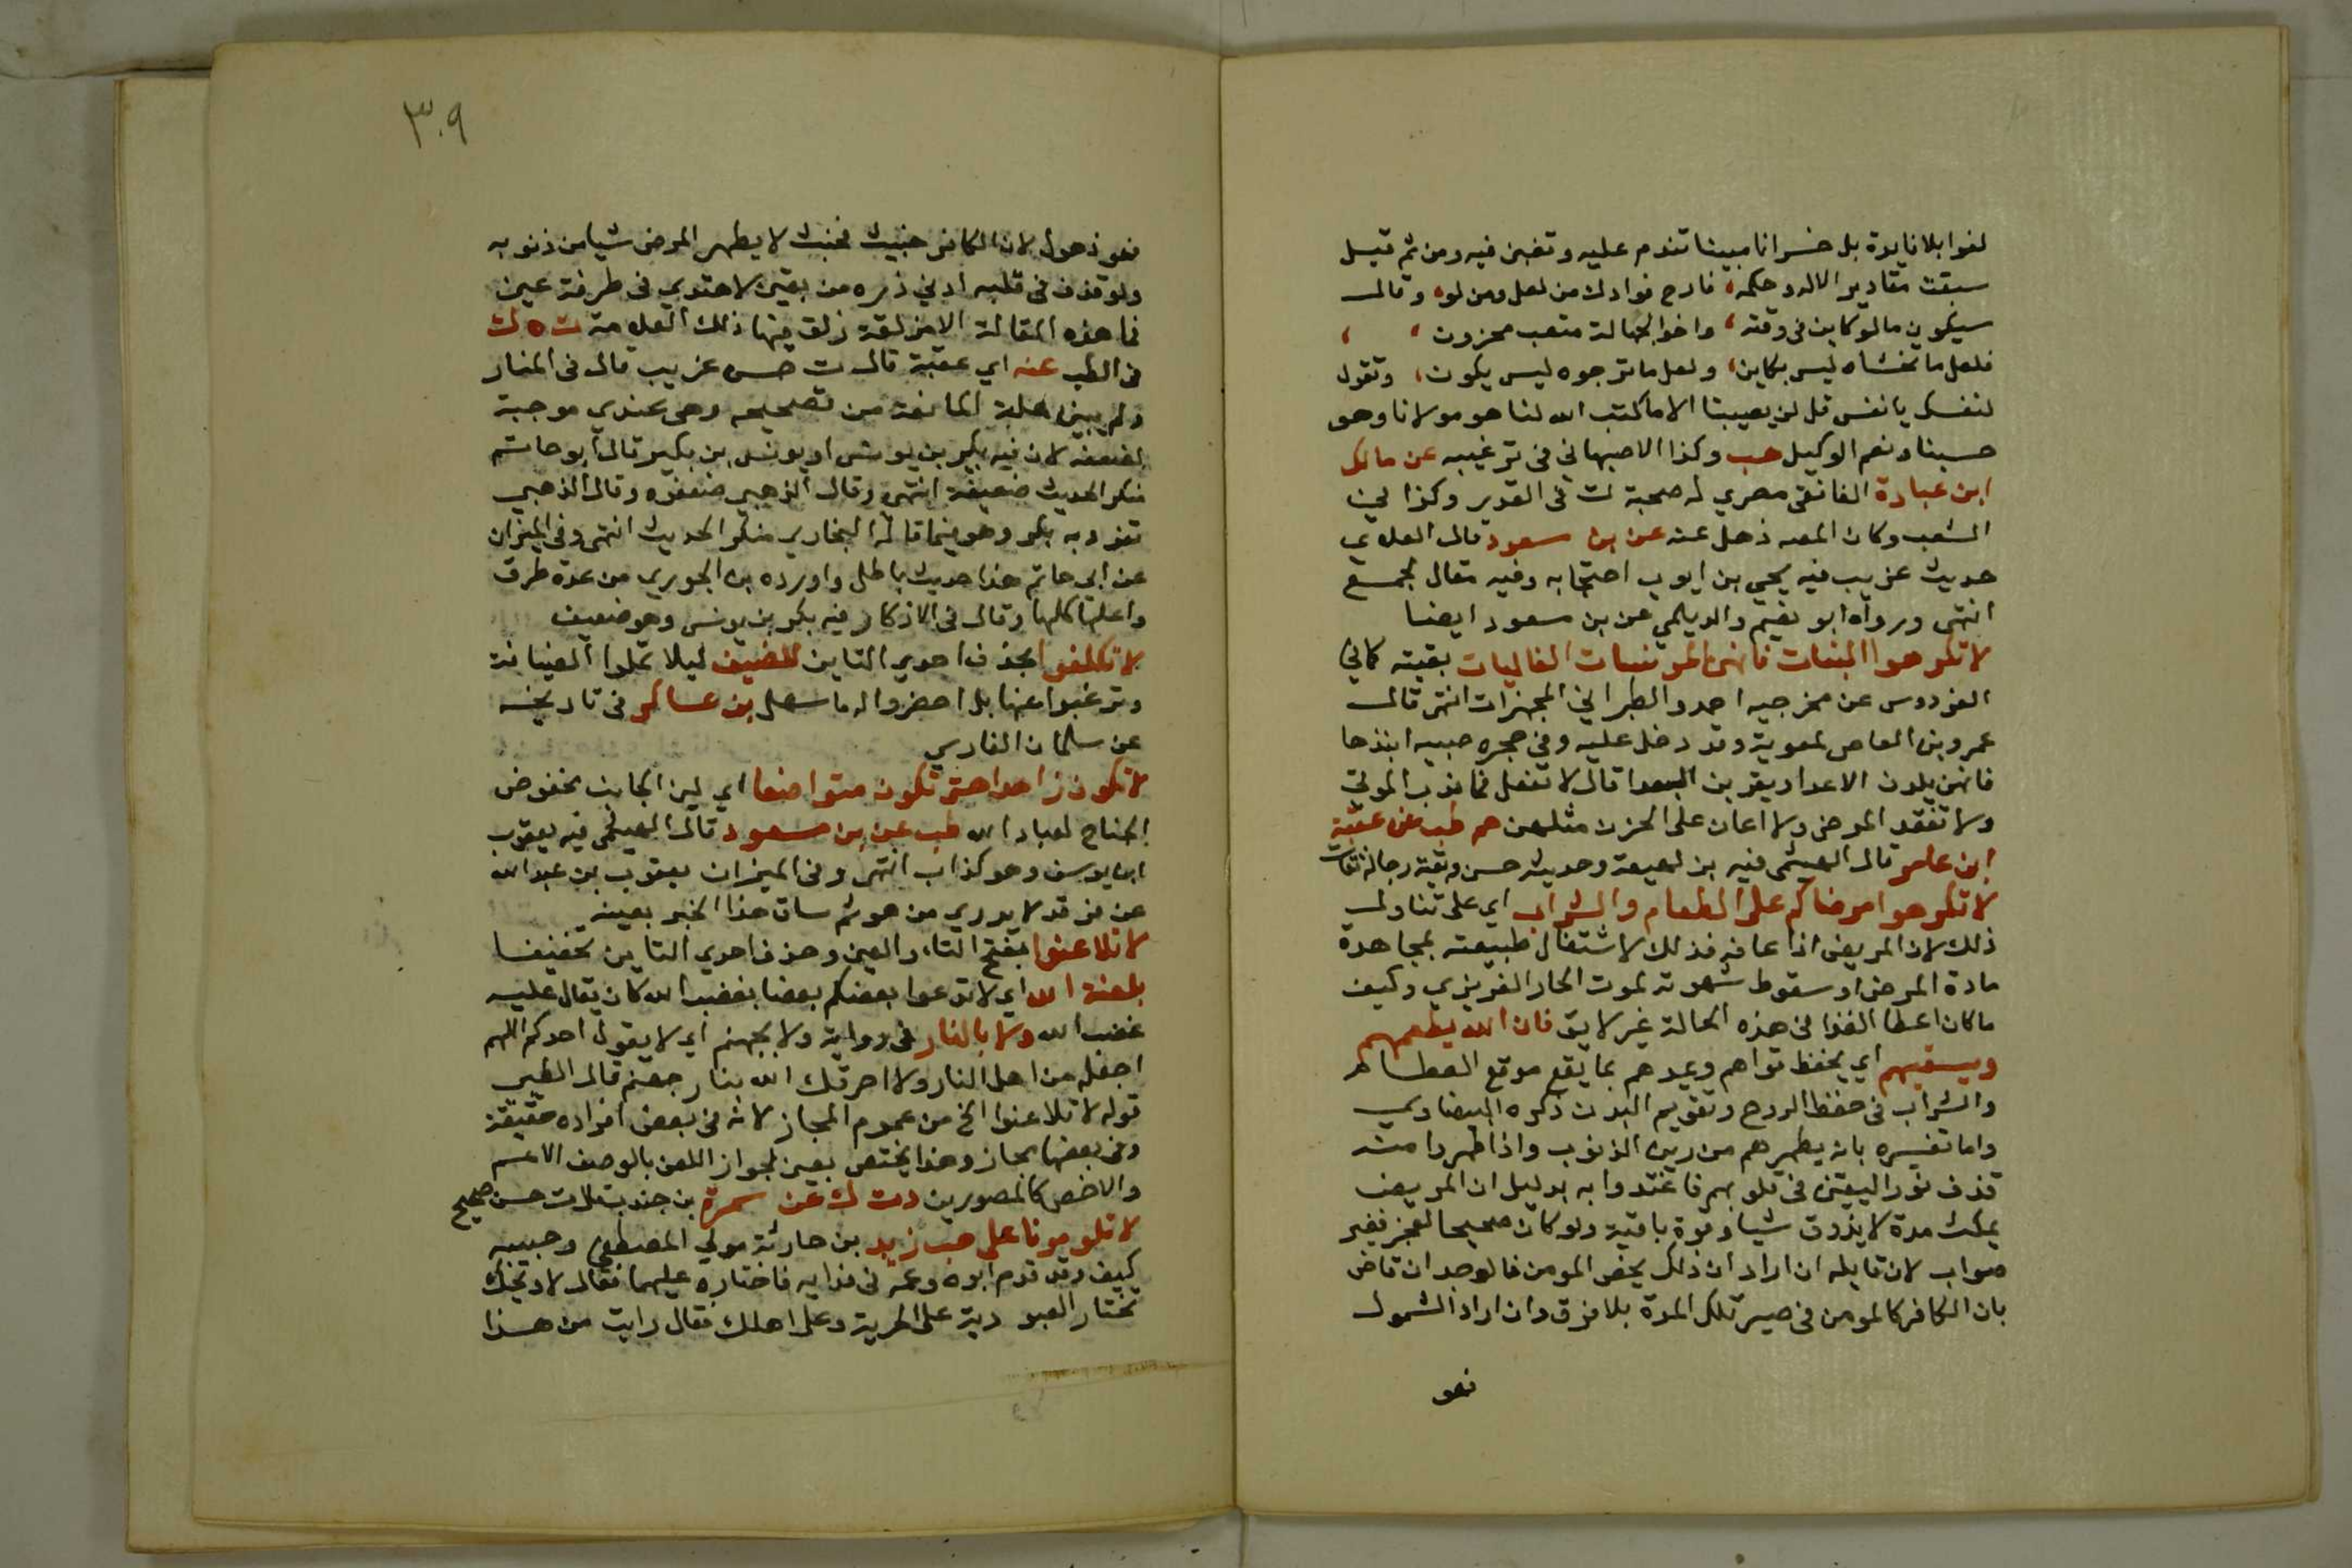 لغوا بلا فايدة بل خسرانا مبينا تندم عليه وتغبن فيه ومن ثم قيل
سبقت مقادير الاله وحكمه، فارح فوادك من لعل ومن لو، وقال
سيكون مالوكاين في وقته، واخو الجهالة متعب محزون، ،
فلعل ما تخشاه ليس بكاين، ولعل ما ترجوه ليس يكون، وتقول
لنفسك يا نفس قل لن يصيبنا الا ماكتب الله لنا هو مولانا وهو
حسبنا ونعم الوكيل هب وكذا الاصبهاني في ترغيبه عن مالك
ابن عبادة الغافقي مصري له صحبة ك في القدير وكذا في
الشعب وكان المص ذهل عنه عن بن سعود قال العلاي
حديث غريب فيه يحيي بن ايوب احتجابه وفيه مقال لجمع
انتهى ورواه ابو نعيم والديلمي عن بن مسعود ايضا
لا تكرهوا البنات فانهن المونسات الغاليات بقيته كما في
الفردوس عن مخرجيه احمد والطبراني المجهزات انتهى قال
عمرو بن العاص لمعوية وقد دخل عليه وفي حجره حبيبه انبذها
فانهن يلدن الاعدا ويقربن البعدا قال لا تفعل فما ندب الموتي
ولا تفقد المرضي ولا اعان على الحزن مثلهن حم طب عن عقبة
ابن عامر قال الهيثمي فيه بن لهيعة وحديثه حسن وبقية رجاله ثقات
لا تكرهوا مرضاكم على الطعام والشراب اي على تناول
ذلك لان المريض اذا عافه فذلك لاشتغال طبيعته بمجاهدة
مادة المرض او سقوط شهوته لموت الحار الغريزي وكيف
ماكان اعطا الغذا في هذه الحالة غير لايق فان الله يطعمهم
ويسقيهم اي يحفظ قواهم ويمدهم بما يقع موقع الطعام
والشراب في حفظ الروح وتقويم البدن ذكره البيضاوي
واما تفسيره بانه يطهرهم من رين الذنوب واذا طهروا منه
قذف نور اليقين في قلوبهم فاغتدوا به بدليل ان المريض
يمكث مدة لا يذوق شيا وقوة باقية ولو كان صحيحا لعجز فغير
صواب لان قايله ان اراد ان ذلك يخص المومن فالوجدان قاض
بان الكافر كالمومن في صبر تلك المدة بلا فرق وان اراد الشمول
فهو
٣٠٩
فهو ذهول لان الكافر خبيث مخبث لا يطهر المرض شيا من ذنوبه
ولو قذف في قلبه ادني ذره من يقين لاهتدي في طرفة عين
فما هذه المقالة الا مزلقة زلق فيها ذلك العلامة ت ه ك
في الطب عنه اي عقبة قال ت حسن غريب قال في المنار
ولم يبين العلة المانعة من تصحيحه وهي عندي موجبة
لضعفه لان فيه بكير بن يونس او يونس بن بكير قال ابو حاتم
منكر الحديث ضعيفه انتهى وقال الذهبي ضعفوه وقال الذهبي
تفرد به بكر وهو فيما قاله البخاري منكر الحديث انتهى وفي الميزان
عن ابي حاتم هذا حديث باطل واورده بن الجوزي من عدة طرق
واعلها كلها وقال في الاذكار فيه بكر بن يونس وهو ضعيف
لا تكلفوا بحذف احدي التاين للضيف ليلا تملوا الضيافة
وترغبوا عنها بل احضروا له ما سهل بن عساكر في تاريخه
عن سلمان الفارسي
لا تكون زاهدا حتى تكون متواضعا اي لين الجانب مخفوض
الجناح لعباد الله طب عن بن مسعود قال الهيثمي فيه يعقوب
ابن يوسف وهو كذاب انتهى وفي الميزان يعقوب بن عبد الله
عن فرقد لا يدري من هو ثم ساق هذا الخبر بعينه
لا تلاعنوا بفتح التاء والعين وحذف احدي التاين تخفيفا
بلعنة الله اي لا تدعوا بعضكم بعضا بغضب الله كان يقال عليه
غضب الله ولا بالنار في رواية ولا بجهنم اي لا يقول احدكم اللهم
اجعله من اهل النار ولا احرقك الله بنار جهنم قال الطيبي
قوله لا تلاعنوا الخ من عموم المجاز لانه في بعض افراده حقيقة
وفي بعضها مجاز وهذا يختص بمعين لجواز اللعن بالوصف الاعم
والاخص كالمصورين د ت ك عن سمرة بن جندب قال ت حسن صحيح
لا تلومونا على حب زيد بن حارثة مولي المصطفى وحبيبه
كيف وقد قدم ابوه وعمه في فدايه فاختاره عليهما فقال لا ويحك
تختار العبودية على الحرية وعلى اهلك فقال رايت من هذا